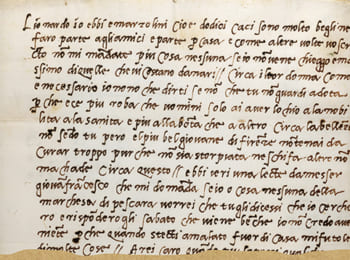 Lionardo io ebbi e marzolini cioe dodici caci sono molto begli ne
faro parte agli amici e parte p casa e come altre volte vo scr
cto no mi mādate piu cosa nessuna se io nō ve ne chieggo e m
ssimo di quelle che vi costano danari // Circa il tor donna com
e necessario io nō o che dirti se nō che tu nō guardi a dota
p che e ce piu roba che uomini solo ai aver lochio alla nobi
lita alla sanita e piu alla bōta che a altro Circa la belleza
nō sēdo tu pero el piu bel giovane di firēze nō te nai da
curar troppo pur che nō sia storpiata ne schifa altro nō
ma chade Circa questo // ebbi ieri una lecte da messer
giovāfrācesco che mi domāda se io o cosa nessuna della
marchesa di pescara vorrei che tu gli dicessi che io cerche
ro e rispōderogli sabato che viene bē che io nō credo ave
niēte p che quando stecti amalato fuor di casa mi fu to
di molte cose // Arei caro quādo tu